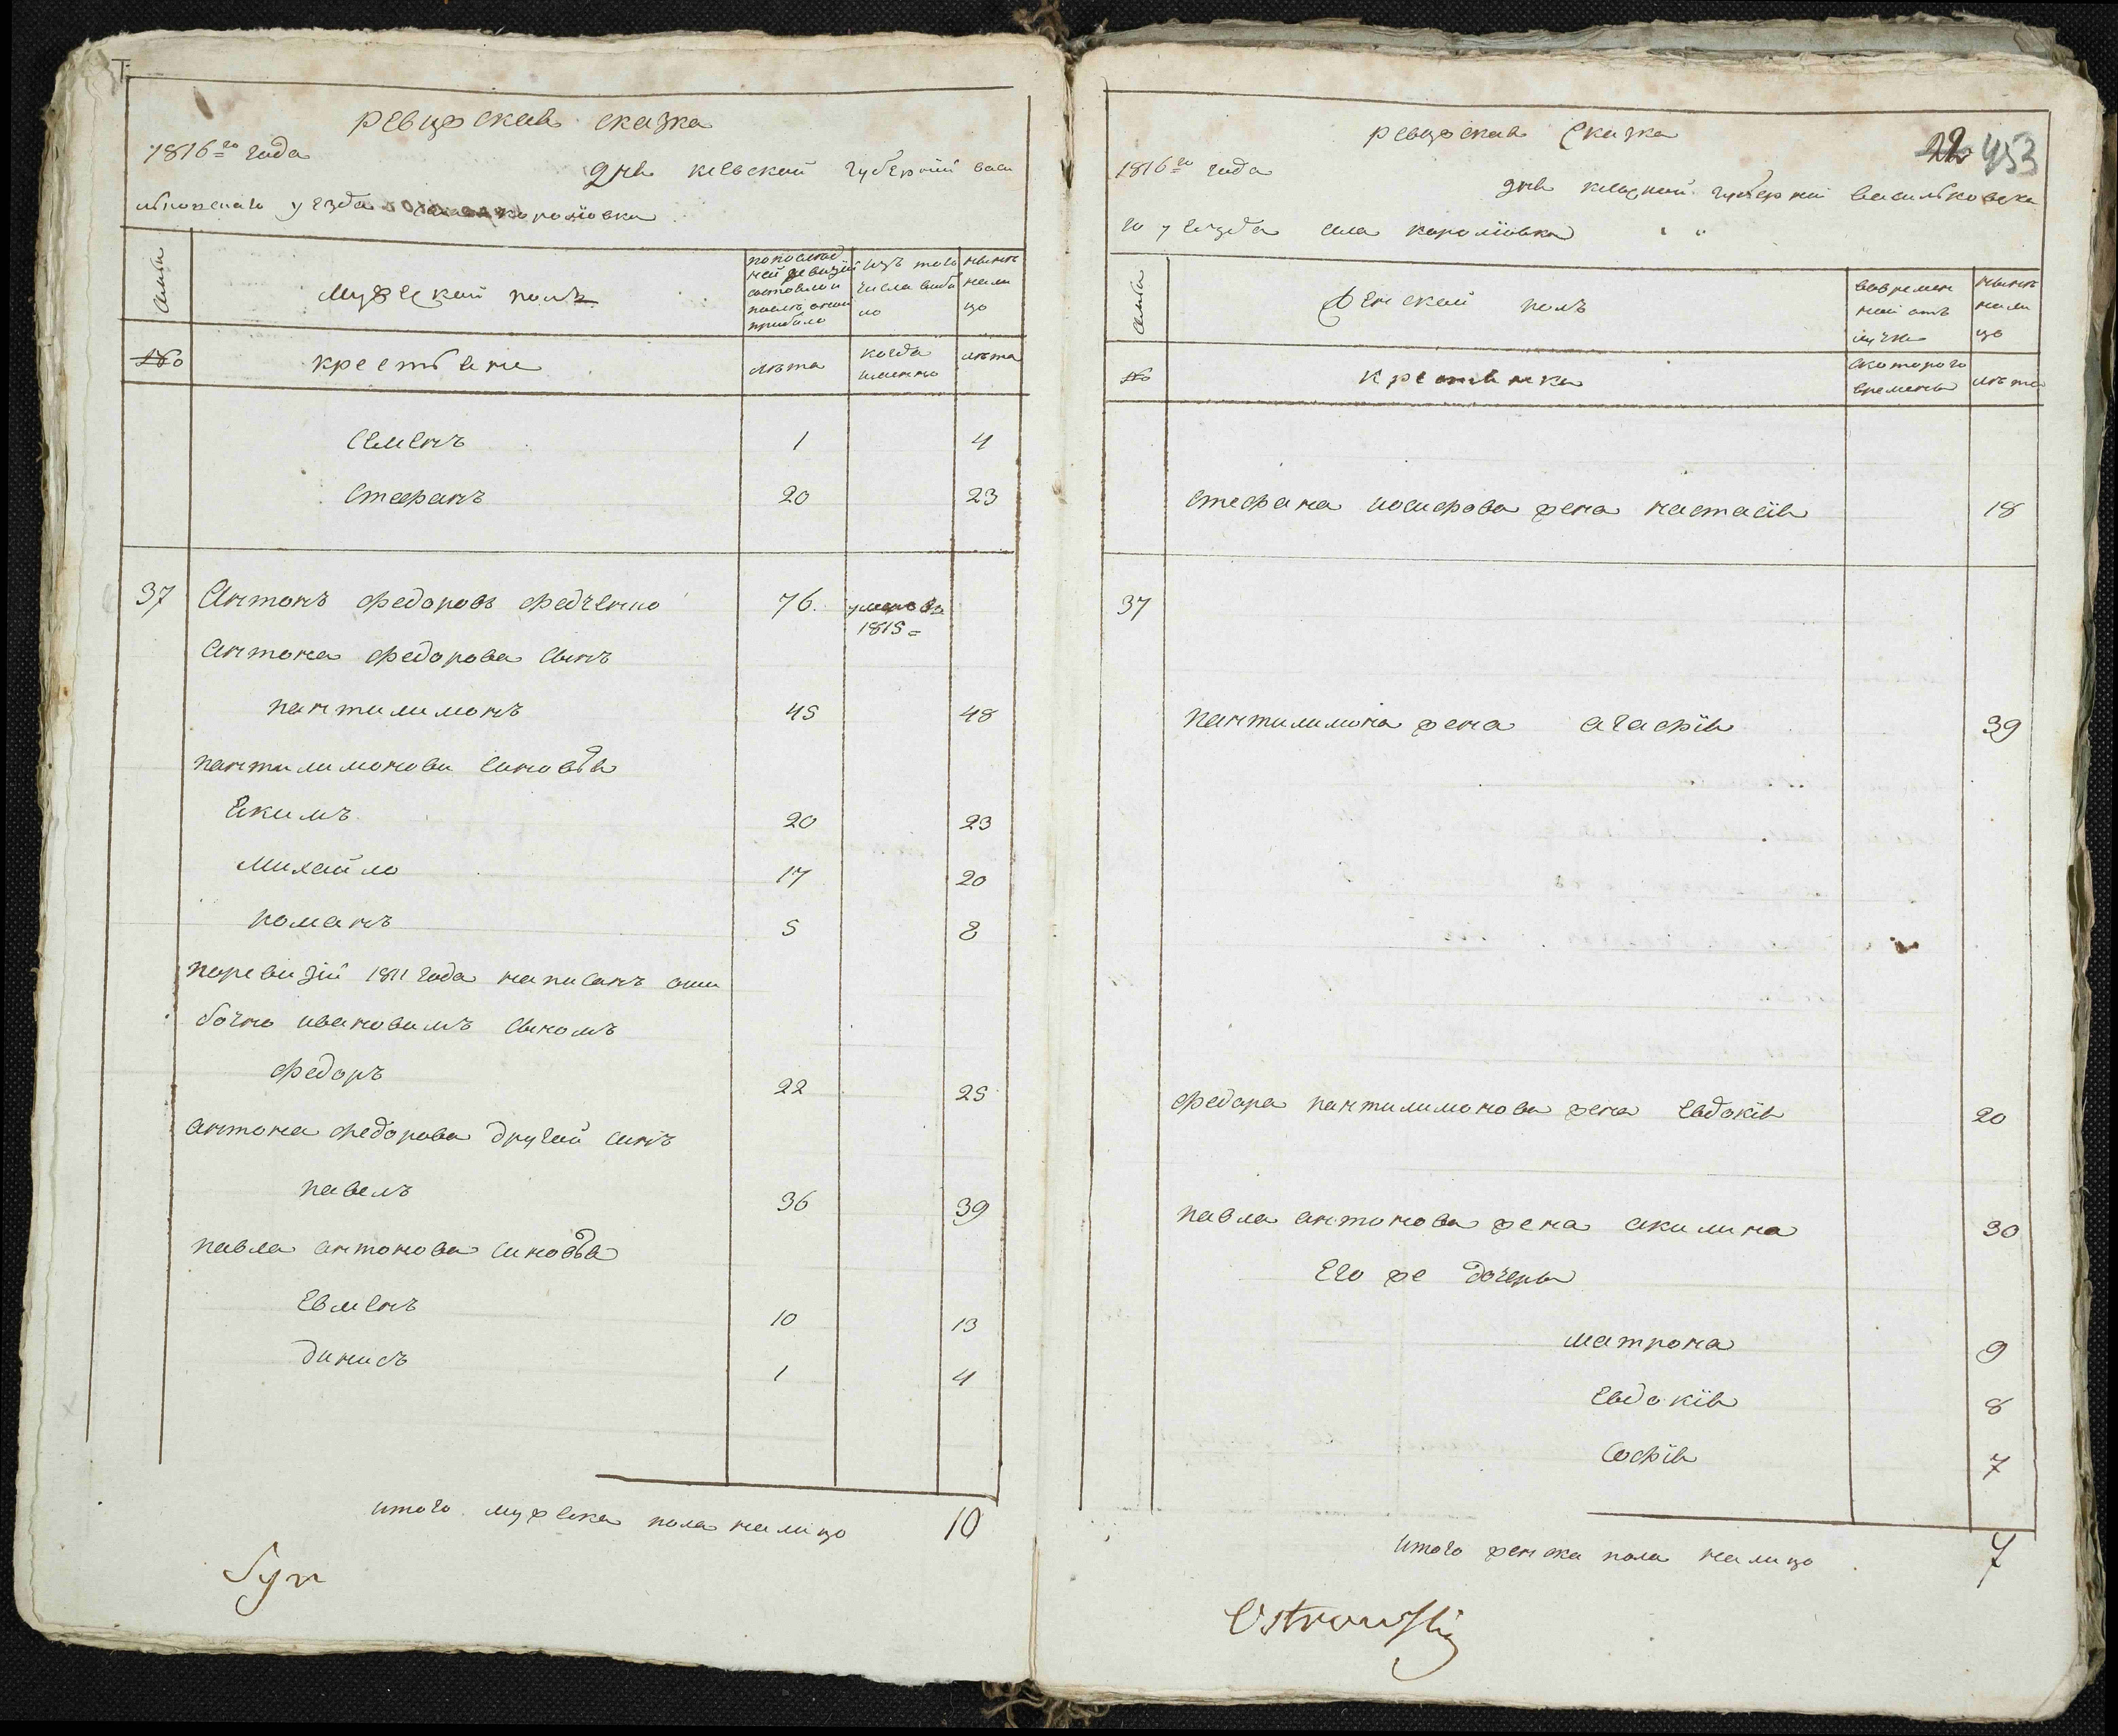 ревизская сказка
1816го года
дня киевской губернии васи
льковскаго уезда села королiовки
семьи
мужеской полъ
по последней ревизiи состояло и после оной прибыло
изъ того числа выбыло
ныне налицо
№
крестьяне
лета
когда именно
лета
Семенъ 1 4
Стефанъ 20 23
37 Антонъ федоровъ федченко 76. умеръ в 1815
Антона федорова сынъ
пантилимонъ 45 48
пантилимонови синовья
Екимъ 20 23
Михайло 17 20
романъ 5 8
поревизiи 1811 года написанъ оши
бочно ивановимъ сыномъ
федоръ 22 25
антона федорова другой синъ
павелъ 36 39
павла антонова синовья
Евменъ 10 13
динисъ 1 4
итого мужеска пола налицо 10
Syn
ревизская сказка
22 453
1816го года
дня киевской губернии васильковска
го уезда села королiовки
семьи
женской полъ
вовременной отлучке
ныне налицо
№
крестьянки
скоторого времены
лета
стефана иосифова жена настасiя 18
37
пантилимона жена агафiя 39
федора пантилимонова жена Евдокiя 20
павла антонова жена акилина 30
Его же дочеры
матрона 9
Евдокiя 8
Софiя 7
итого женска пола налицо 7
Ostrowski